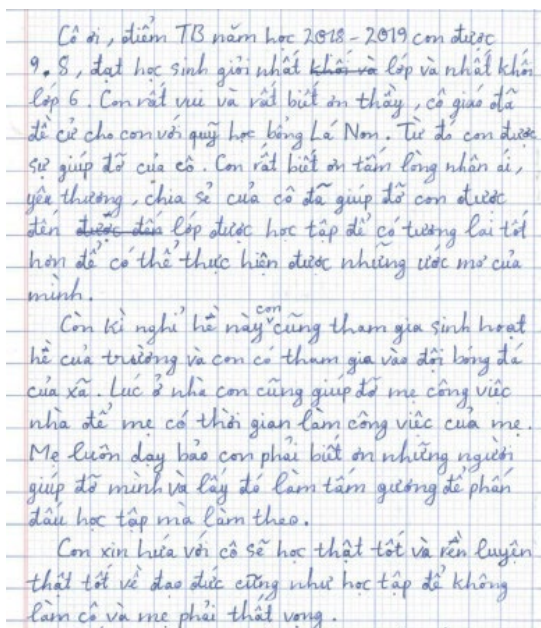 Cô ơi, điểm TB năm học 2018-2019 con được
9.8, đạt học sinh giỏi nhất khối và lớp và nhất khối
lớp 6. Con rất vui và rất biết ơn thầy, cô giáo đã
đề cử cho con với quỹ học bổng Lá Non. Từ đó con được
sự giúp đỡ của cô. Con rất biết ơn tấm lòng nhân ái,
yêu thương, chia sẻ của cô đã giúp đỡ con được
đến được đến lớp được học tập để có tương lai tốt
hơn để có thể thực hiện được những ước mơ của
mình.
Còn kì nghỉ hè này con cũng tham gia sinh hoạt
hè của trường và con có tham gia vào đội bóng đá
của xã. Lúc ở nhà con cũng giúp đỡ mẹ công việc
nhà để mẹ có thời gian làm công việc của mẹ.
Mẹ luôn dạy bảo con phải biết ơn những người
giúp đỡ mình và lấy đó làm tấm gương để phấn
đấu học tập mà làm theo.
Con xin hứa với cô sẽ học thật tốt và rèn luyện
thật tốt về đạo đức cũng như học tập để không
làm cô và mẹ phải thất vọng.